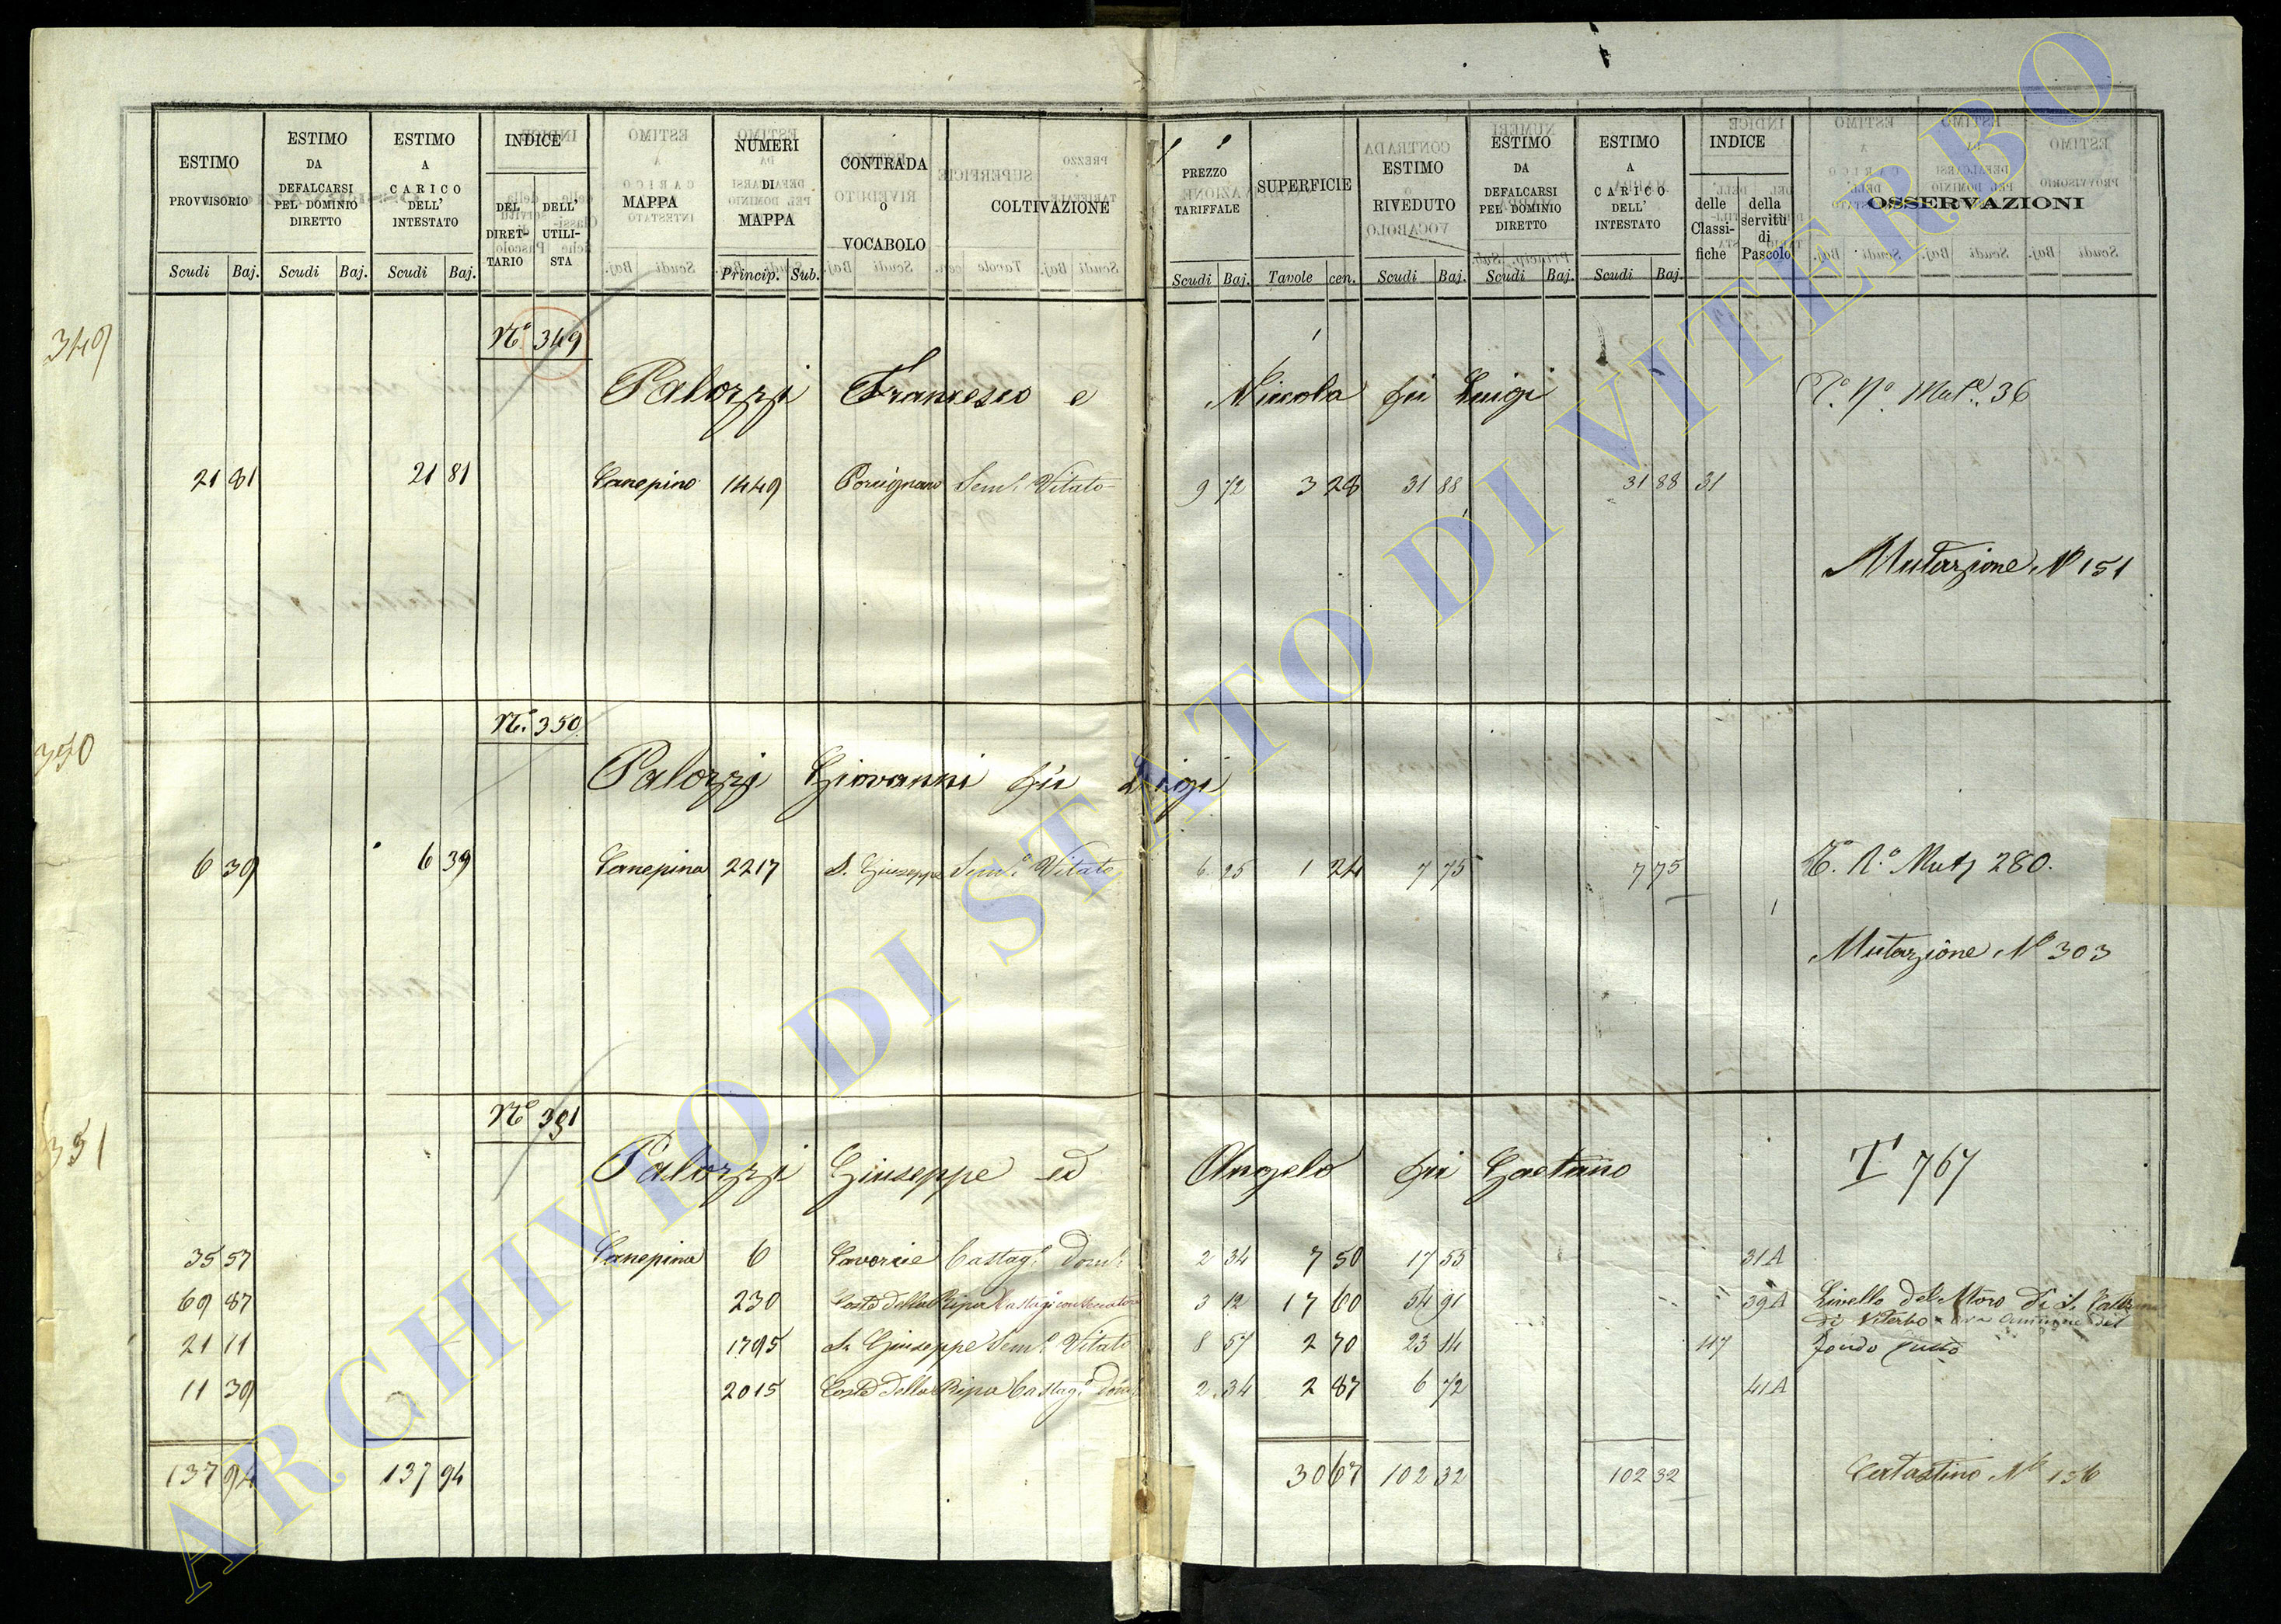 ESTIMO PROVVISORIO Scudi Baj.
ESTIMO DA DEFALCARSI PEL DOMINIO DIRETTO Scudi Baj.
ESTIMO A CARICO DELL' INTESTATO Scudi Baj.
INDICE DEL DIRET-TARIO DELL' UTILI-STA
MAPPA
NUMERI DI MAPPA Princip. Sub.
CONTRADA O VOCABOLO
COLTIVAZIONE
PREZZO TARIFFALE Scudi Baj.
SUPERFICIE Tavole cen.
ESTIMO RIVEDUTO Scudi Baj.
ESTIMO DA DEFALCARSI PEL DOMINIO DIRETTO Scudi Baj.
ESTIMO A CARICO DELL' INTESTATO Scudi Baj.
INDICE delle Classi-fiche della servitù di Pascolo
OSSERVAZIONI
349 N.º 349
Palozzi Francesco e Niccola fu Luigi
21 81 21 81 Canepina 1449 Porcignano Sem.º Vitato 9 72 3 28 31 88 31 88 31
Mutazione Nº 151
350 Nº. 350
Palozzi Giovanni fu Luigi
6 39 6 39 Canepina 2217 S. Giuseppe Sem.º Vitato 6 25 1 24 7 75 7 75 280.
Mutazione Nº 303
351 Nº 351
Palozzi Giuseppe ed Angelo fu Gaetano T 767
35 57 Canepina 6 Castag.º Dom.º 2 34 7 50 17 55 31A
69 87 230 Costa della Ripa 3 12 17 60 54 91 39A Livello del
di Viterbo
21 11 1795 S. Giuseppe Sem.º Vitato 8 57 2 70 23 14 117 fondo
11 39 2015 Costa della Ripa Castag.º Dom.º 2 34 2 87 6 72 41A
137 94 137 94 30 67 102 32 102 32 Catastino Nº 136
ARCHIVIO DI STATO DI VITERBO